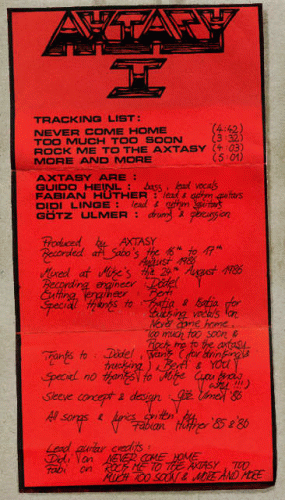 AXTASY
I
TRACKING LIST:
NEVER COME HOME (4:42)
TOO MUCH TOO SOON (3:32)
ROCK ME TO THE AXTASY (4:03)
MORE AND MORE (5:01)
AXTASY ARE:
GUIDO HEINL: bass, lead vocals
FABIAN HÜTHER: lead & rythm guitars
DIDI LINGE: lead & rythm guitars
GÖTZ ULMER: drums &
Produced by AXTASY
Recorded at Sabo's the 16th to 17th
August 1986
Mixed at Mike's the 29th August 1986
Recording engineer: Dödel
Cutting engineer: Bert
Special thanks to: Katja & Katja for
backing vocals on
Never come home,
too much too soon &
Rock me to the axtasy
Thanks to: Dödel, Frank (for drinkings &
trucking), Bert & YOU!
Special no thanks to Mike (you know
why!!!)
Sleeve concept & design: Götz Ulmer '86
All songs & lyrics written by
Fabian Hüther '85 & '86
Lead guitar credits:
Didi on NEVER COME HOME
Fabi on ROCK ME TO THE AXTASY, TOO
MUCH TOO SOON & MORE AND MORE